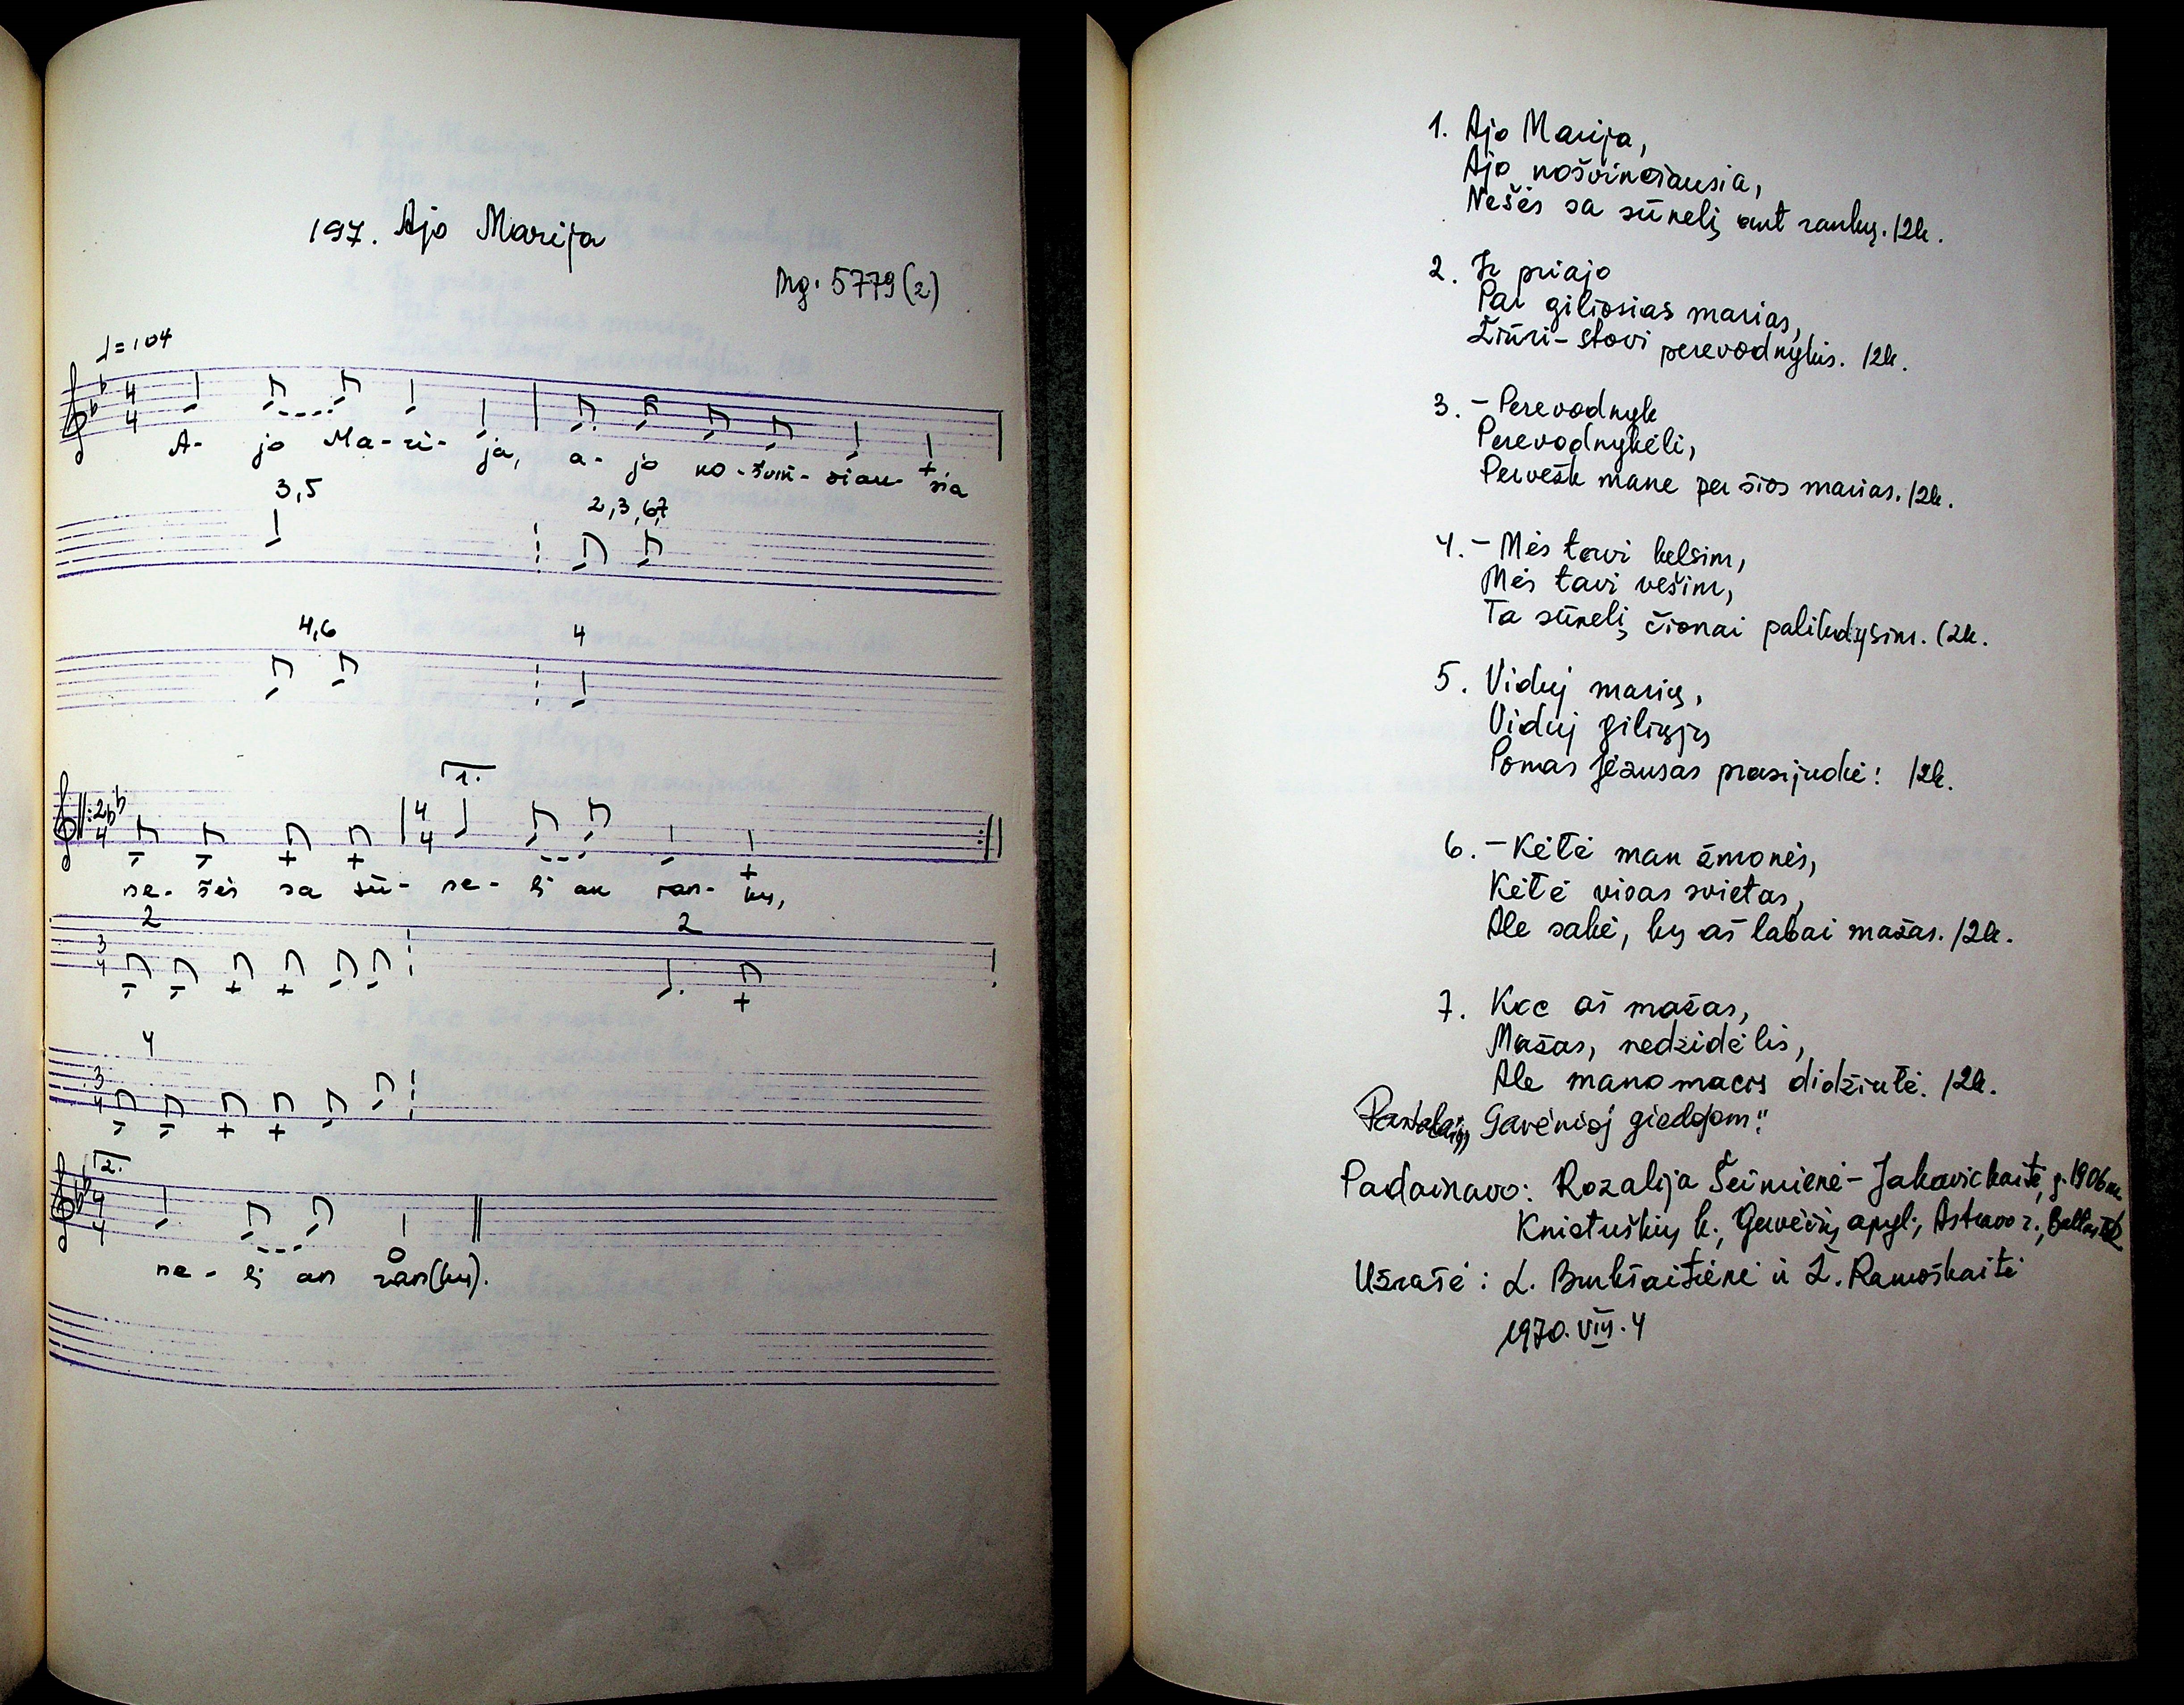 197. Ajo Marija
Mg. 5779(2)
♩=104
A- jo Ma-ri- ja, a- jo no-švin-čiau- sia
3,5
2,3,6,7
4,6
4
1.
ne- šės sa sū- ne- lį an ran- kų,
2
2
4
2.
ne- lį an ran(kų).
1. Ajo Marija,
Ajo nošvinčiausia,
Nešės sa sūnelį ant rankų. /2k.
2. Ir priajo
Par giliosias marias,
Žiūri- stovi perevodnykis. /2k.
3. - Perevodnyk
Perevodnykėli,
Pervešk mane per šios marias. /2k.
4. - Mės tavi kelsim,
Mės tavi vešim,
Ta sūnelį čionai palikdysim. (2k.
5. Viduj marių,
Viduj giliųjų
Ponas Jėzusas prasijudė! /2k.
6. - Kėtė man žmonės,
Kėtė visas svietas,
Ale sakė, ky aš labai mažas. /2k.
7. Kcc aš mažas,
Mažas, nedzidėlis,
Ale mano macis didžiutė. /2k.
„Gavėnioj giedojom"
Padainavo: Rozalija Šeimienė- Jakavickaitė, g. 1906 m.
Knistuškių k., Gervėčių apyl., Astravo r.,
Užrašė: L. Burkšaitienė ir Ž. Ramoškaitė
1970. VIII. 4